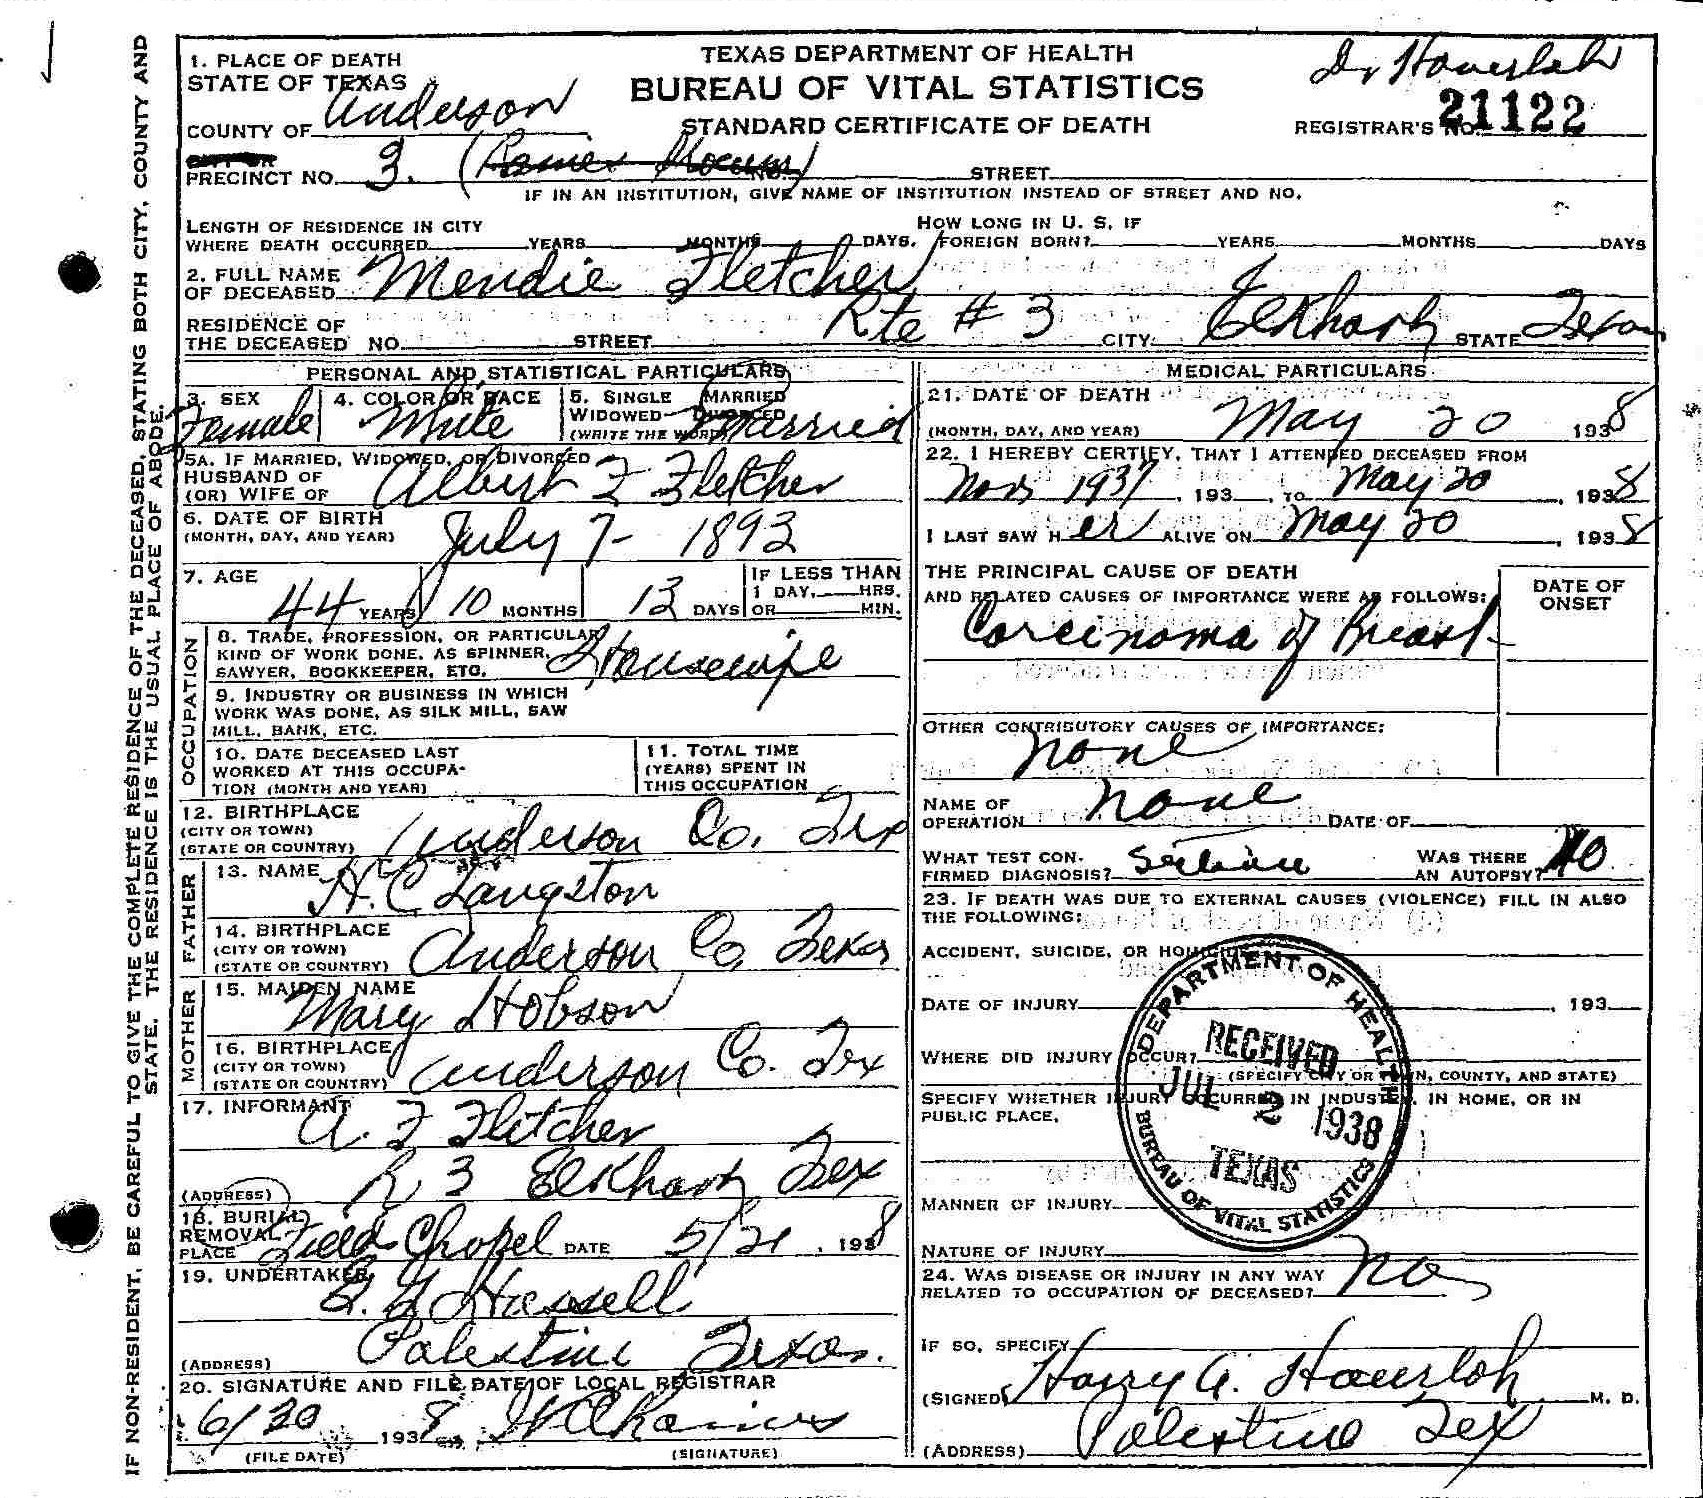 1. PLACE OF DEATH
STATE OF TEXAS
COUNTY OF Anderson
TEXAS DEPARTMENT OF HEALTH
BUREAU OF VITAL STATISTICS
STANDARD CERTIFICATE OF DEATH
Dr Hauerloh
REGISTRAR'S NO. 21122
PRECINCT NO. 3. STREET
IF IN AN INSTITUTION, GIVE NAME OF INSTITUTION INSTEAD OF STREET AND NO.
LENGTH OF RESIDENCE IN CITY
WHERE DEATH OCCURRED YEARS MONTHS DAYS.
HOW LONG IN U. S. IF
FOREIGN BORN? YEARS MONTHS DAYS
2. FULL NAME
OF DECEASED Mendie Fletcher
RESIDENCE OF
THE DECEASED NO. STREET Rte # 3 CITY Elkhart STATE Texas
PERSONAL AND STATISTICAL PARTICULARS
3. SEX Female
4. COLOR OR RACE White
5. SINGLE MARRIED
WIDOWED DIVORCED
(WRITE THE WORD) Married
5A. IF MARRIED, WIDOWED, OR DIVORCED
HUSBAND OF
(OR) WIFE OF Albert F Fletcher
6. DATE OF BIRTH
(MONTH, DAY, AND YEAR) July 7- 1893
7. AGE
44 YEARS 10 MONTHS 13 DAYS
IF LESS THAN
1 DAY, HRS.
OR MIN.
OCCUPATION
8. TRADE, PROFESSION, OR PARTICULAR
KIND OF WORK DONE, AS SPINNER,
SAWYER, BOOKKEEPER, ETC. Housewife
9. INDUSTRY OR BUSINESS IN WHICH
WORK WAS DONE, AS SILK MILL, SAW
MILL, BANK, ETC.
10. DATE DECEASED LAST
WORKED AT THIS OCCUPA-
TION (MONTH AND YEAR)
11. TOTAL TIME
(YEARS) SPENT IN
THIS OCCUPATION
12. BIRTHPLACE
(CITY OR TOWN)
(STATE OR COUNTRY) Anderson Co. Tex
FATHER
13. NAME H. C. Langston
14. BIRTHPLACE
(CITY OR TOWN)
(STATE OR COUNTRY) Anderson Co. Texas
MOTHER
15. MAIDEN NAME
Mary Hobson
16. BIRTHPLACE
(CITY OR TOWN)
(STATE OR COUNTRY) Anderson Co. Tex
17. INFORMANT
A. F Fletcher
(ADDRESS) R 3 Elkhart Tex
18. BURIAL
REMOVAL
PLACE Field Chapel DATE 5/21, 1938
19. UNDERTAKER
Hassell
(ADDRESS) Palestine Texas.
20. SIGNATURE AND FILE DATE OF LOCAL REGISTRAR
6/30 1938
(FILE DATE) (SIGNATURE)
MEDICAL PARTICULARS
21. DATE OF DEATH
(MONTH, DAY, AND YEAR) May 20 1938
22. I HEREBY CERTIFY, THAT I ATTENDED DECEASED FROM
Nov 1937, 193 , TO May 20, 1938
I LAST SAW HER ALIVE ON May 20, 1938
THE PRINCIPAL CAUSE OF DEATH
AND RELATED CAUSES OF IMPORTANCE WERE AS FOLLOWS:
DATE OF
ONSET
Carcinoma of Breast
OTHER CONTRIBUTORY CAUSES OF IMPORTANCE:
None
NAME OF
OPERATION None DATE OF
WHAT TEST CON-
FIRMED DIAGNOSIS?
WAS THERE
AN AUTOPSY? No
23. IF DEATH WAS DUE TO EXTERNAL CAUSES (VIOLENCE) FILL IN ALSO
THE FOLLOWING:
ACCIDENT, SUICIDE, OR HOMICIDE
DATE OF INJURY , 193
WHERE DID INJURY OCCUR?
(SPECIFY CITY OR TOWN, COUNTY, AND STATE)
SPECIFY WHETHER INJURY OCCURRED IN INDUSTRY, IN HOME, OR IN
PUBLIC PLACE.
DEPARTMENT OF HEALTH
RECEIVED
JUL 2 1938
TEXAS
BUREAU OF VITAL STATISTICS
MANNER OF INJURY
NATURE OF INJURY
24. WAS DISEASE OR INJURY IN ANY WAY
RELATED TO OCCUPATION OF DECEASED? No
IF SO, SPECIFY
(SIGNED) Harry G. Hauerloh M. D.
(ADDRESS) Palestine Tex
IF NON-RESIDENT, BE CAREFUL TO GIVE THE COMPLETE RESIDENCE OF THE DECEASED, STATING BOTH CITY, COUNTY AND
STATE. THE RESIDENCE IS THE USUAL PLACE OF ABODE.